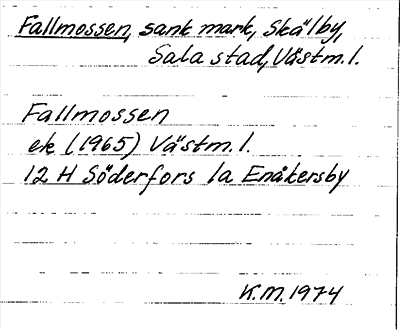 Fallmossen, sank mark, Skälby,
Sala stad, Västm.l.
Fallmossen
ek (1965) Västm.l.
12 H Söderfors 1a Enåkersby
K.M. 1974